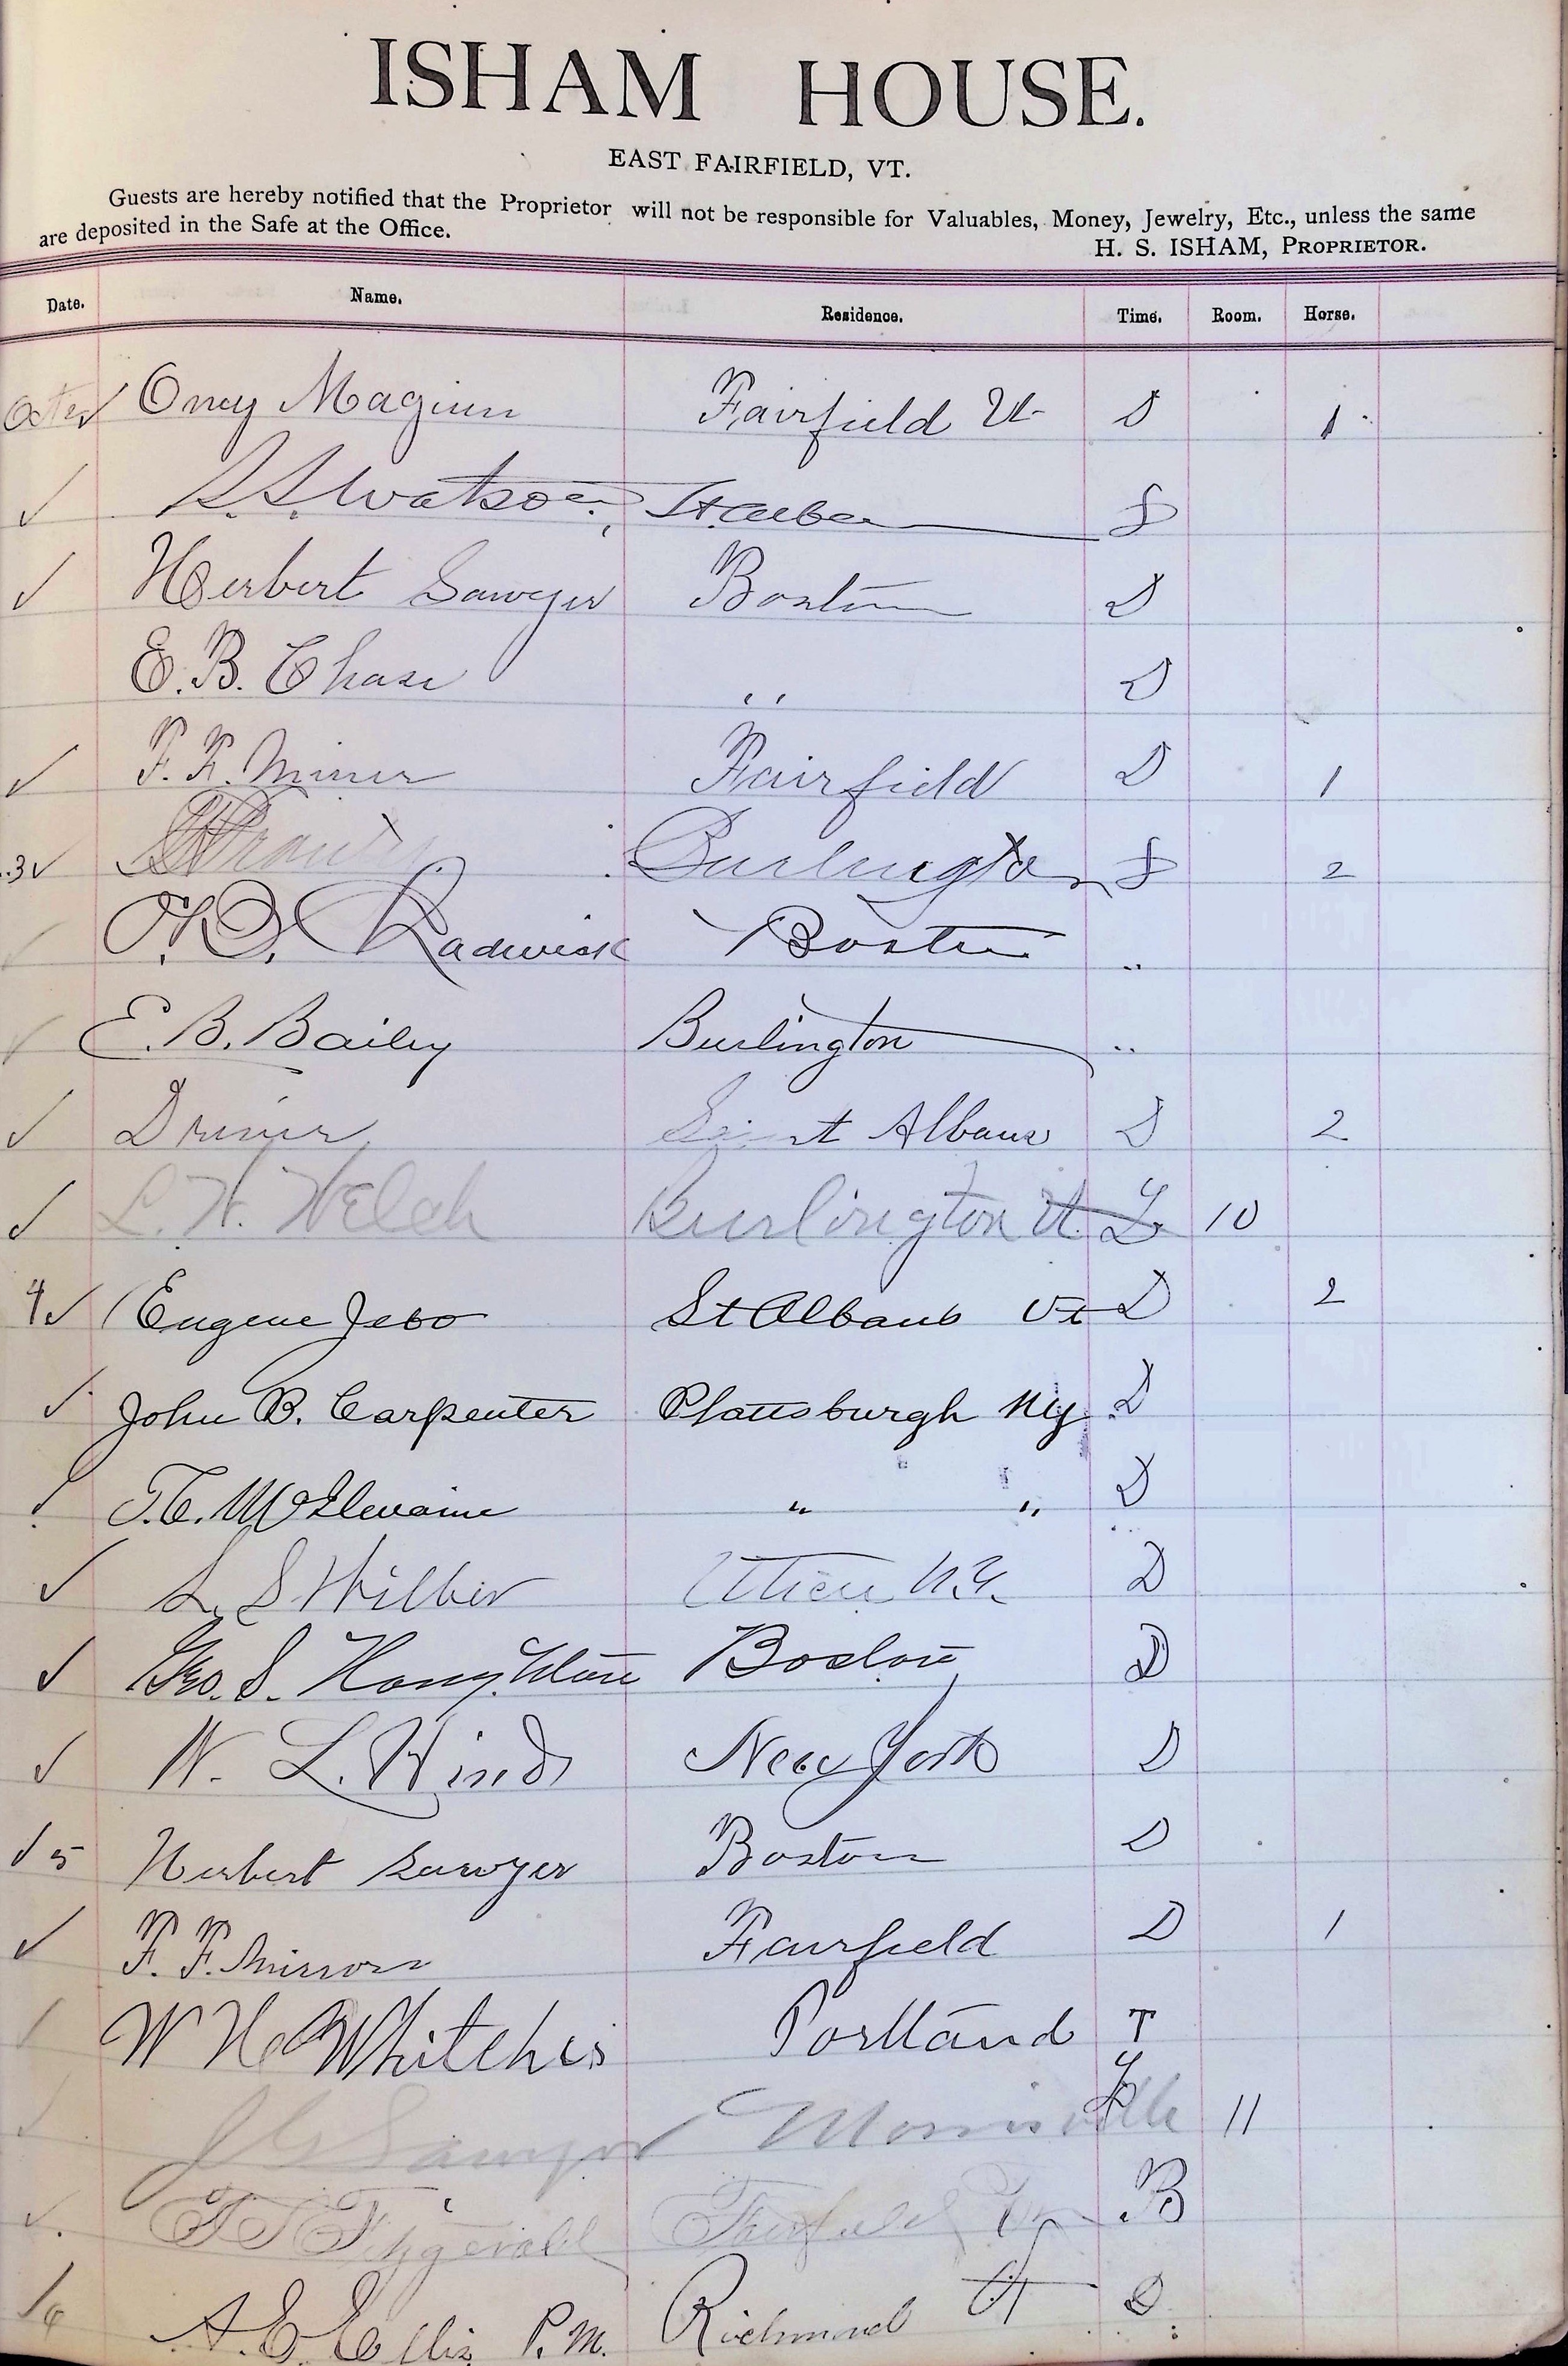 ISHAM HOUSE.
EAST FAIRFIELD, VT.
Guests are hereby notified that the Proprietor will not be responsible for Valuables, Money, Jewelry, Etc., unless the same
are deposited in the Safe at the Office.
H. S. ISHAM, PROPRIETOR.
Date. Name. Residence. Time. Room. Horse.
✓ Oney Maginn Fairfield Vt D 1
✓ S. S. Watson, St. Alban S
✓ Herbert Sawyer Boston D
E. B. Chase " D
✓ F. F. Minor Fairfield D 1
3 ✓ Burlington S 2
✓ Radwick Boston "
✓ E. B. Bailey Burlington "
✓ Driver Saint Albans D 2
✓ L. W. Welch Burlington Vt L 10
4 ✓ Eugene Jebo St Albans Vt D 2
✓ John B. Carpenter Plattsburgh NY D
✓ T. C. McIlevaine " " D
✓ L. S Wilber Utica N.Y. D
✓ Geo. S. Houghton Boston D
✓ W. L. Hinds New York D
✓ 5 Herbert Sawyer Boston D
✓ F. F. Minor Fairfield D 1
✓ W H Portland T
✓ Sawyer Morrisville L 11
✓ F S Fitzgerald Fairfield B
✓ 6 A. E. Ellis P.M. Richmond Vt D